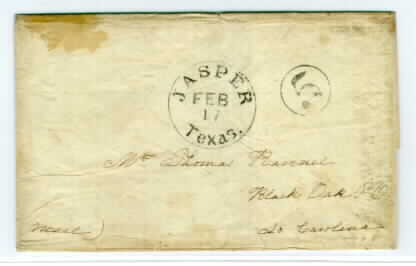 JASPER
FEB
17
Texas.
Mr Thomas Ravenel
Black Oak P.O
So Carolina